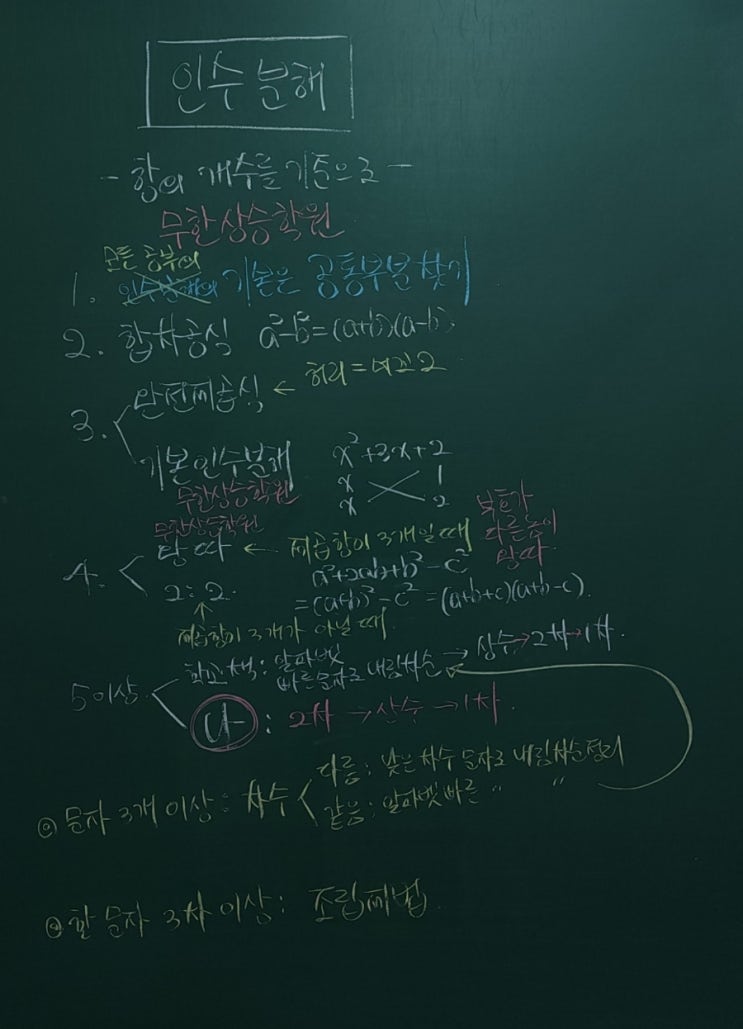 인수분해
- 항의 개수를 기준으로 -
무한상승학원
모든 공부의
1. 인수분해의 기술은 공통부분 찾기
2. 합차공식 a²-b²=(a+b)(a-b)
3. 완전제곱식 ← 허리=여친2
기본인수분해 x²+3x+2
x 1
x 2
무한상승학원
무한상승학원
4. 왕따 ← 제곱항이 3개일때
부호가 다른놈이 왕따
a²+2ab+b²-c²
2:2. =(a+b)²-c²=(a+b+c)(a+b-c).
↑
제곱항이 3개가 아닐때
5이상. 학교책: 알파벳 빠른문자로 내림차순 → 상수→2차→1차.
나: 2차→상수→1차.
⊙ 문자 3개 이상: 차수
다름: 낮은차수 문자로 내림차순정리
같음: 알파벳빠른 〃 〃
⊙ 한 문자 3차 이상: 조립제법.